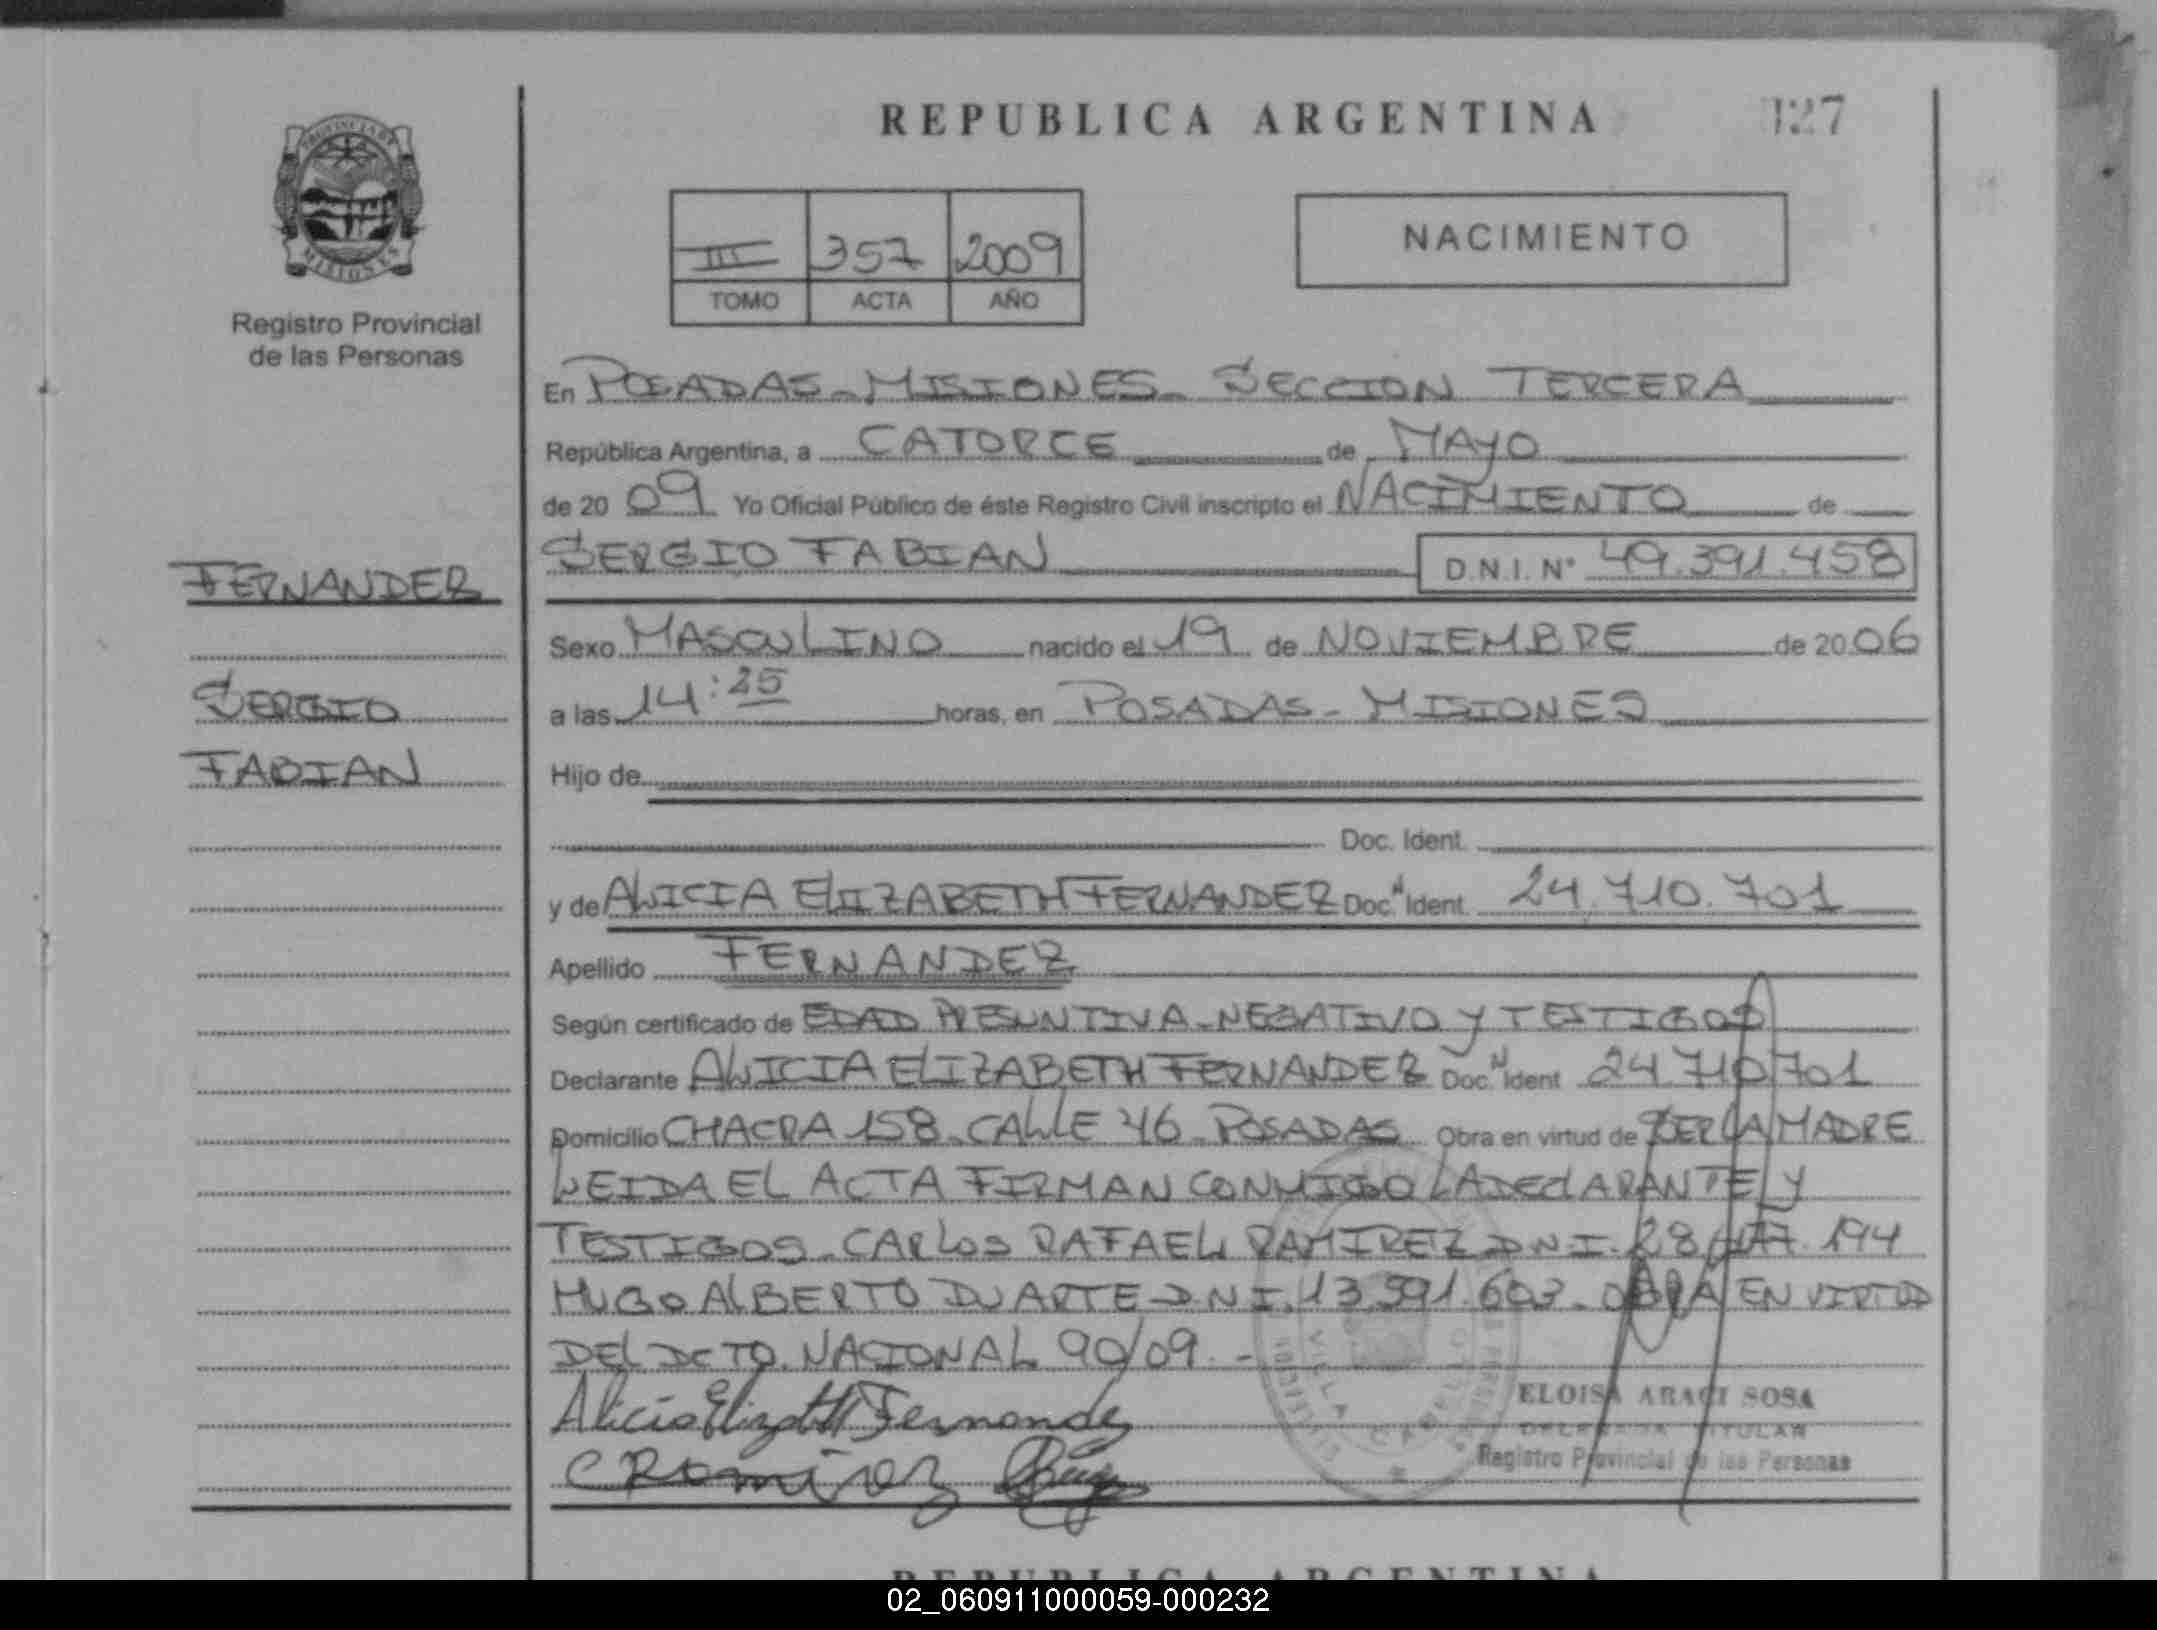 REPUBLICA ARGENTINA
127
PROVINCIA DE
MISIONES
Registro Provincial
de las Personas
III 357 2009
TOMO ACTA AÑO
NACIMIENTO
En POSADAS - MISIONES - SECCION TERCERA
República Argentina, a CATORCE de MAYO
de 20 09 Yo Oficial Público de éste Registro Civil inscripto el NACIMIENTO de
SERGIO FABIAN D.N.I. Nº 49.391.458
FERNANDEZ
Sexo MASCULINO nacido el 19 de NOVIEMBRE de 20 06
SERGIO
a las 14:25 horas, en POSADAS - MISIONES
FABIAN
Hijo de
Doc. Ident.
y de ALICIA ELIZABETH FERNANDEZ Doc. N Ident. 24.710.701
Apellido FERNANDEZ
Según certificado de EDAD PRESUNTIVA - NEGATIVO Y TESTIGOS
Declarante ALICIA ELIZABETH FERNANDEZ Doc. N Ident 24.710.701
Domicilio CHACRA 158 - CALLE 46 - POSADAS Obra en virtud de SER LA MADRE
LEIDA EL ACTA FIRMAN CONMIGO LA DECLARANTE Y
TESTIGOS - CARLOS RAFAEL RAMIREZ D.N.I. 28.077.194
HUGO ALBERTO DUARTE D.N.I. 13.591.603 - OBRA EN VIRTUD
DEL DCTO. NACIONAL 90/09. -
Alicia Elizabeth Fernandez
C Ramirez
ELOISA ARACI SOSA
DELEGADA TITULAR
Registro Provincial de las Personas
REPUBLICA ARGENTINA
02_060911000059-000232